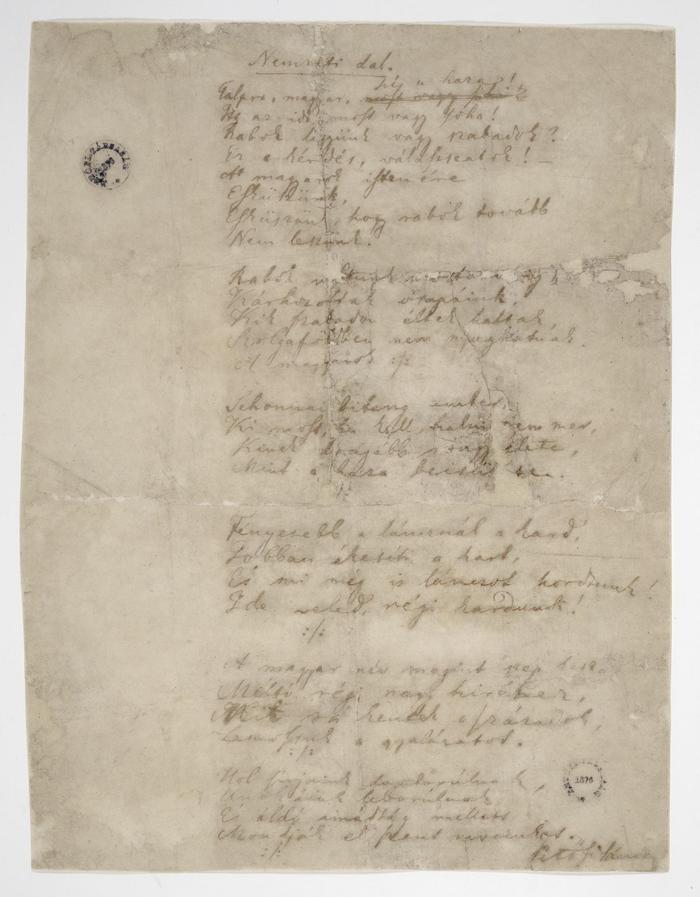 Nemzeti dal.
hí „ haza!
Talpra, magyar, most vagy soha!
Itt az idő, most vagy soha!
Rabok legyünk vagy szabadok?
Ez a kérdés, válasszatok!
A' magyarok istenére
Esküszünk,
Esküszünk, hogy rabok tovább
Nem leszünk.
Rabok voltunk mostanáig,
Kárhozottak ősapáink,
Kik szabadon éltek haltak
Szolgaföldben nem nyughatnak.
A magyarok :/:
Sehonnai bitang ember,
Ki most, ha kell, halni nem mer,
Kinek drágább rongy élete,
Mint a haza becsülete.
:/:
Fényesebb a láncznál a kard,
Jobban ékesíti a kart,
És mi még is lánczot hordtunk!
Ide veled, régi kardunk!
:/:
A magyar név megint szép lesz
Méltó régi nagy hiréhez,
Mit rá kentek a századok,
Lemossuk a gyalázatot.
:/:
Hol sírjaink domborúlnak,
Unokáink leborúlnak
És áldó imádság mellett
Mondják el szent neveinket.
:/:
Petőfi Sándor
1876